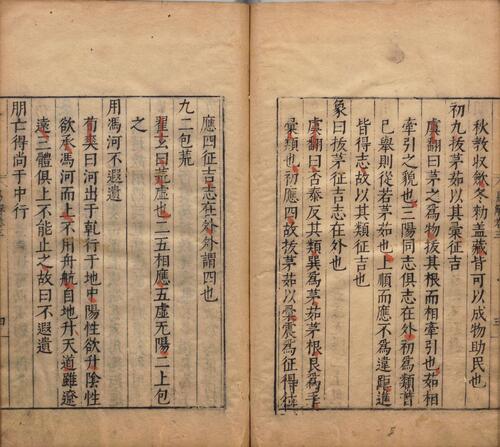 秋教收斂冬勑盖藏皆可以成物助民也
初九拔茅茹以其彙征吉
虞翻曰茅之為物拔其根而相牽引也茹相
牽引之貌也三陽同志俱志在外初為類首
己舉則從若茅茹也上順而應不為違距進
皆得志故以其類征吉也
象曰拔茅征吉志在外也
虞翻曰否泰反其類巽為茅茹茅根艮為手
彙類也初應四故拔茅茹以彙震為征得位
應四征吉志在外外謂四也
九二包荒
翟玄曰荒虛也二五相應五虛无陽二上包
之
用馮河不遐遺
荀爽曰河出于乾行于地中陽性欲升陰性
欲承馮河而上不用舟航自地升天道雖遼
遠三體俱上不能止之故曰不遐遺
朋亡得尚于中行
四
三